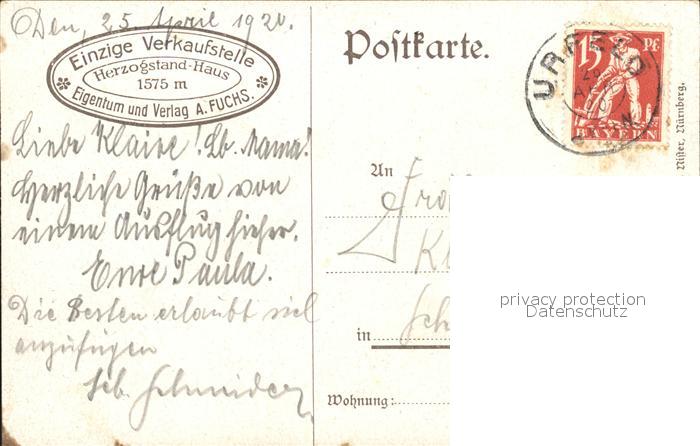 Den, 25. April 1920.
Einzige Verkaufstelle
Herzogstand-Haus
1575 m
Eigentum und Verlag A. FUCHS.
Liebe Klaire! Lb. Mama!
Herzliche Grüße von
einem Ausflug hieher.
Eure Paula.
Die Besten erlaubt sich
anzufügen
Seb. Schneider
Postkarte.
15 Pf
BAYERN
URFELD
An
in
Wohnung:
Nister, Nürnberg.
privacy protection
Datenschutz